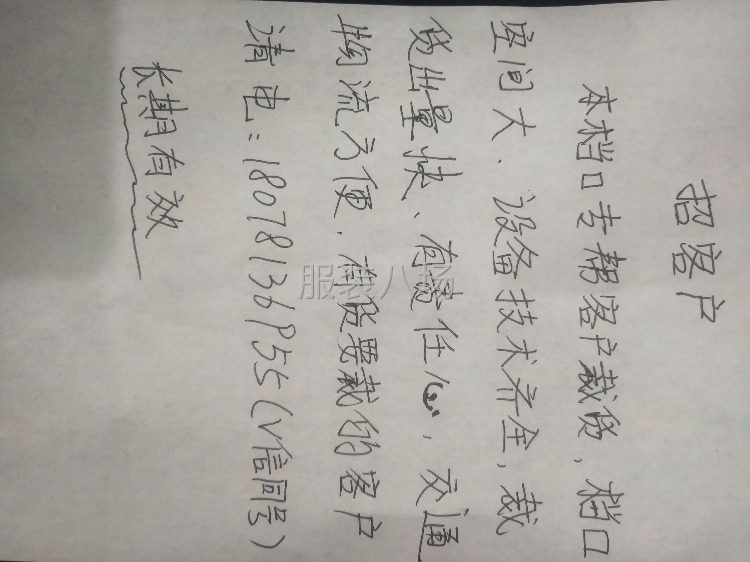 招客户
本档口专帮客户裁货、档口
空间大、设备技术齐全，裁
货出量快、有责任心，交通
物流方便，有货要裁的客户
请电：18078136955（V信同号）
长期有效
服装八场